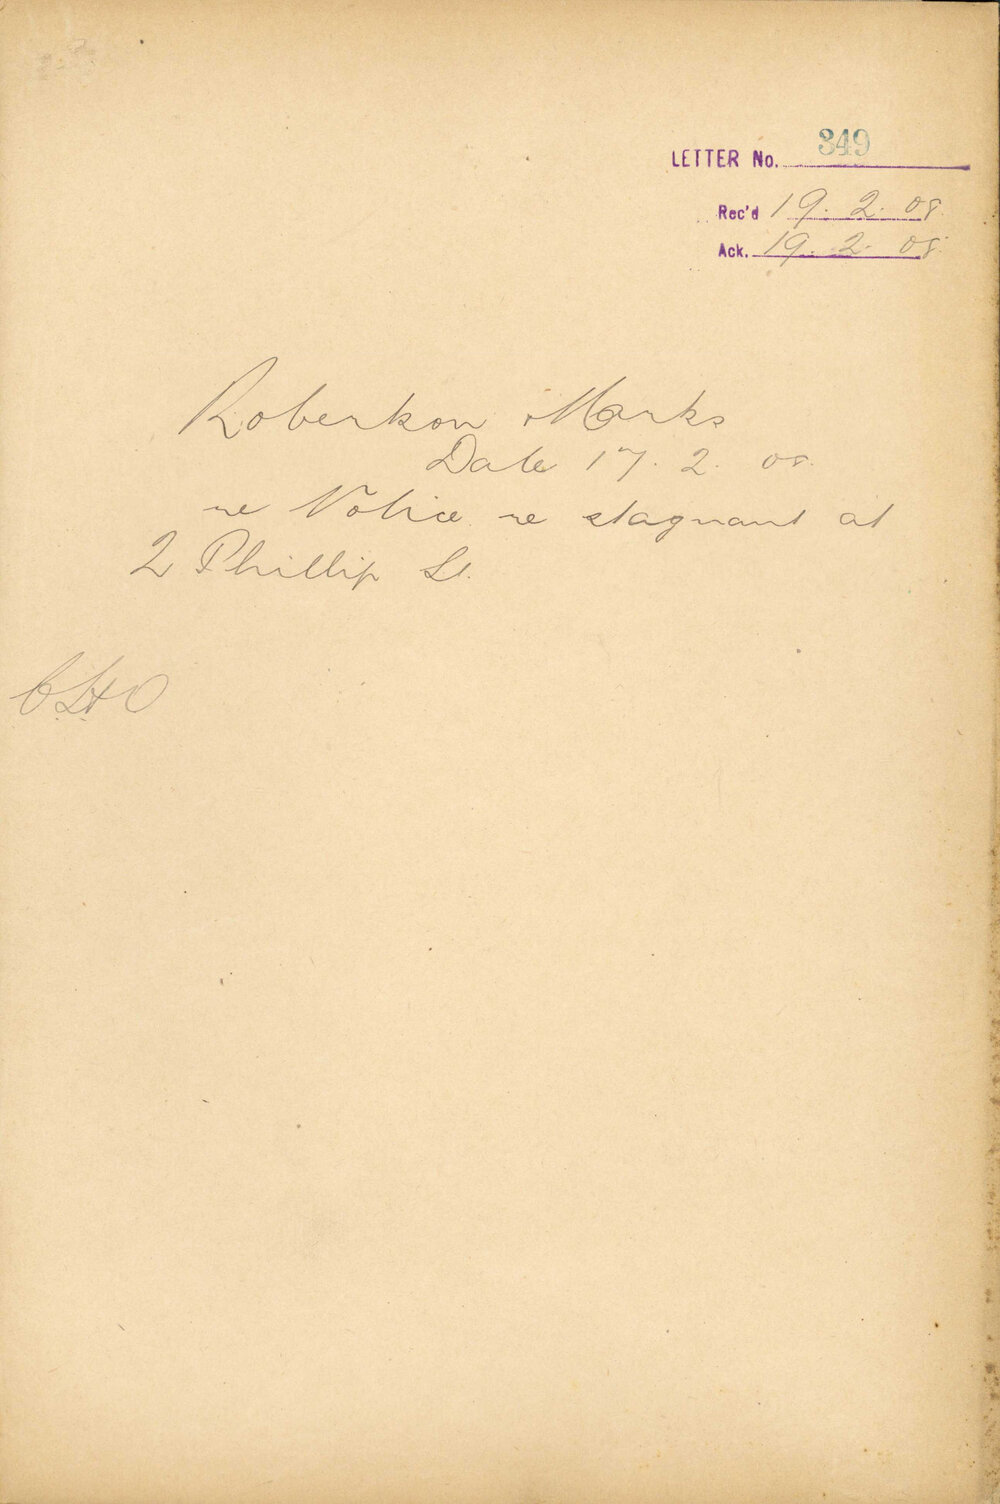 LETTER No. 349
Rec'd 19.2.08.
Ack. 19.2.08.
Robertson & Marks
Date 17.2.08.
re Notice re stagnant at
2 Phillip St.